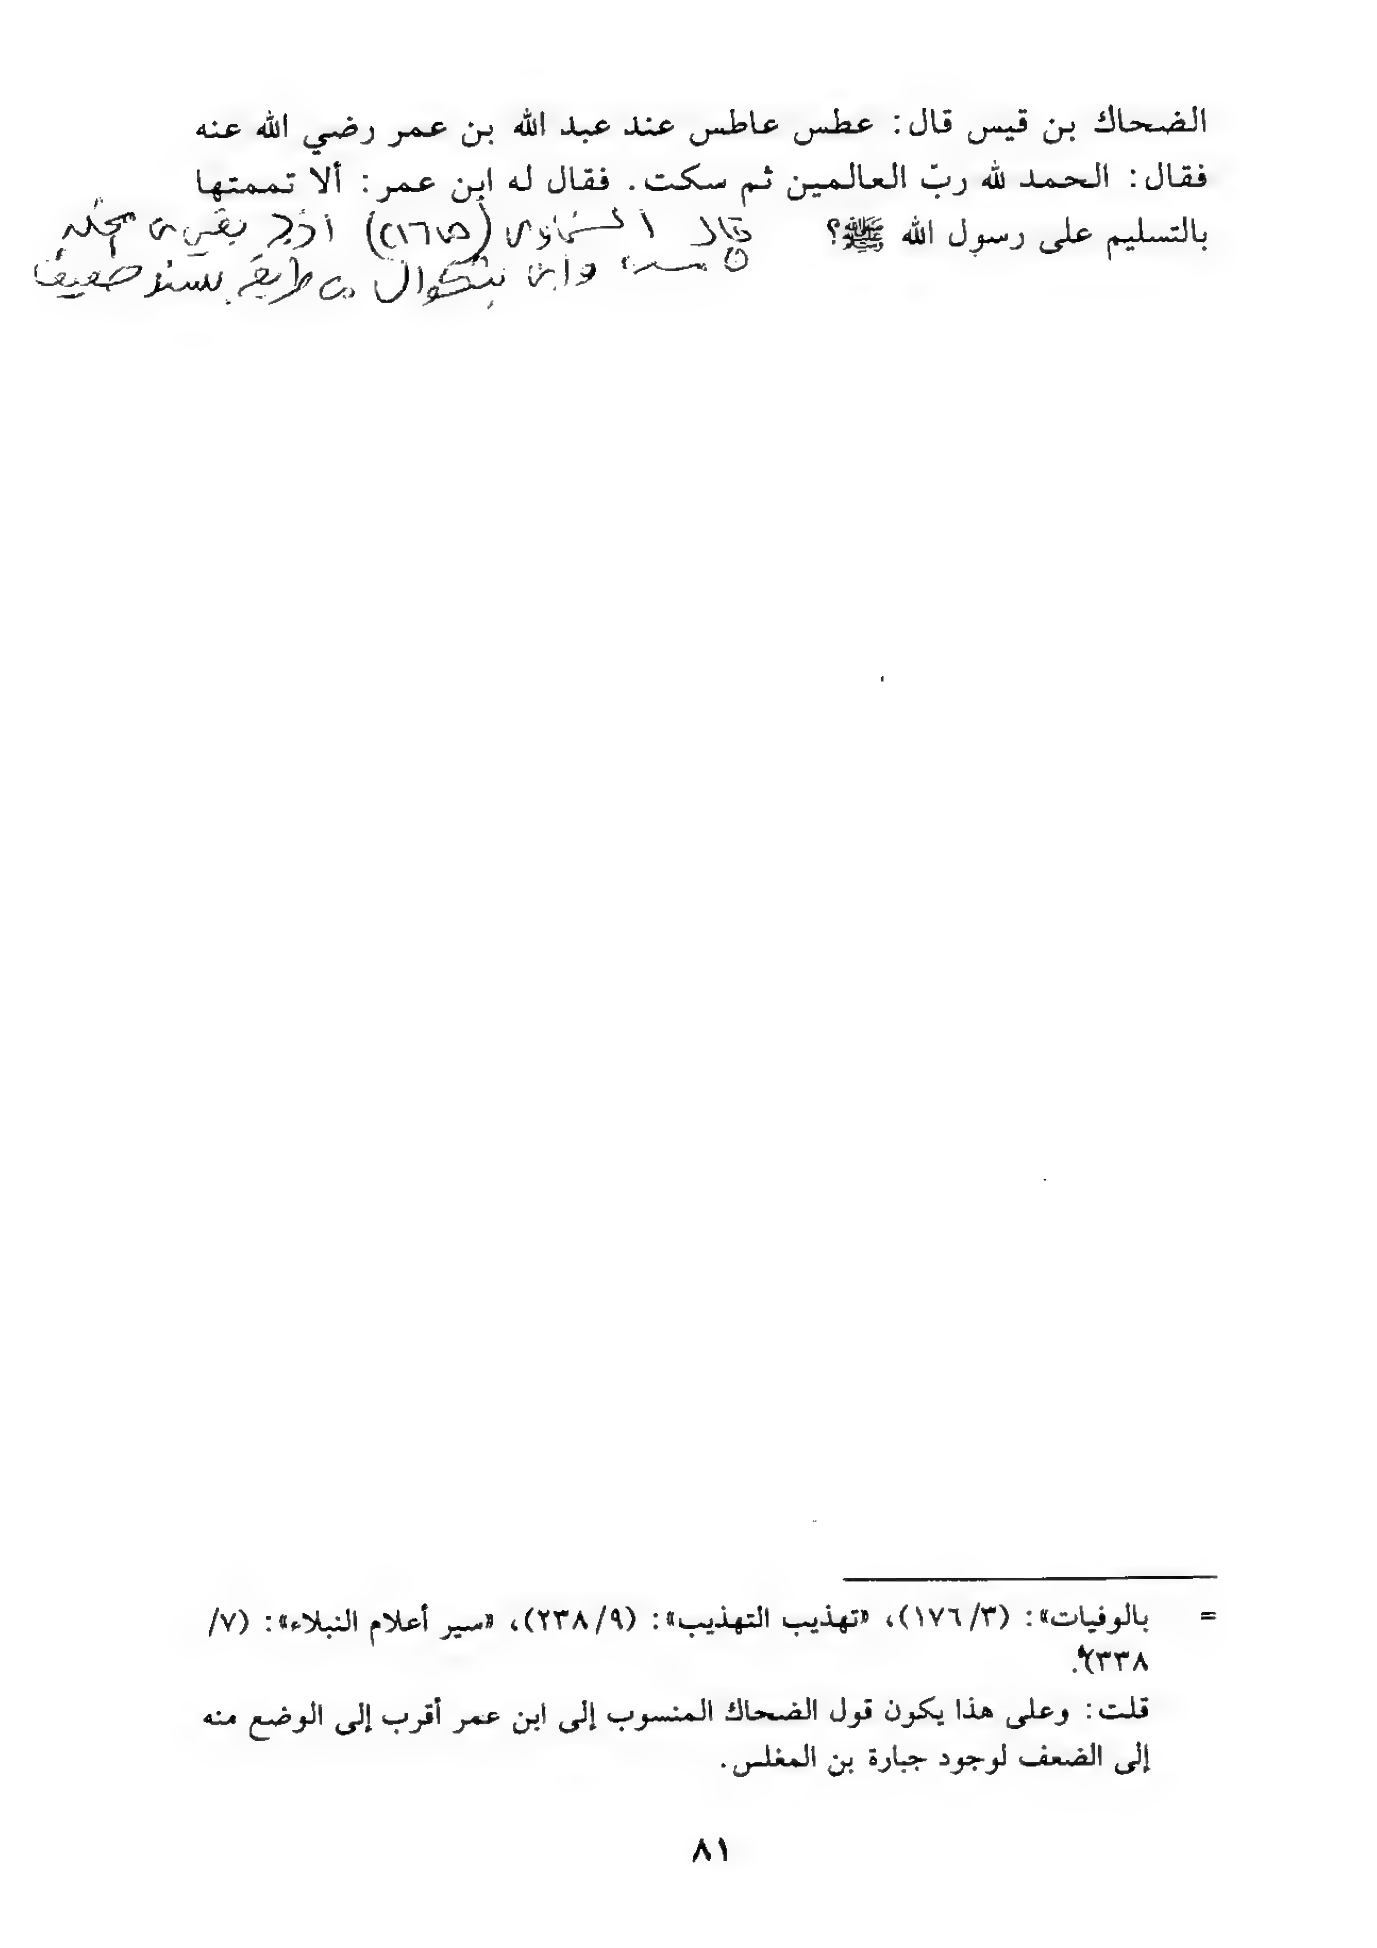 الضحاك بن قيس قال: عطس عاطس عند عبد الله بن عمر رضي الله عنه
فقال: الحمد لله ربّ العالمين ثم سكت. فقال له ابن عمر: ألا تممتها
بالتسليم على رسول الله ﷺ؟
قال السخاوي (ص٢١٦) أخرجه بقي بن مخلد
في مسنده وابن بشكوال من طريقه بسند ضعيف
= بالوفيات»: (٣/ ١٧٦)، «تهذيب التهذيب»: (٩/ ٢٣٨)، «سير أعلام النبلاء»: (٧/
٣٣٨).
قلت: وعلى هذا يكون قول الضحاك المنسوب إلى ابن عمر أقرب إلى الوضع منه
إلى الضعف لوجود جبارة بن المغلس.
٨١